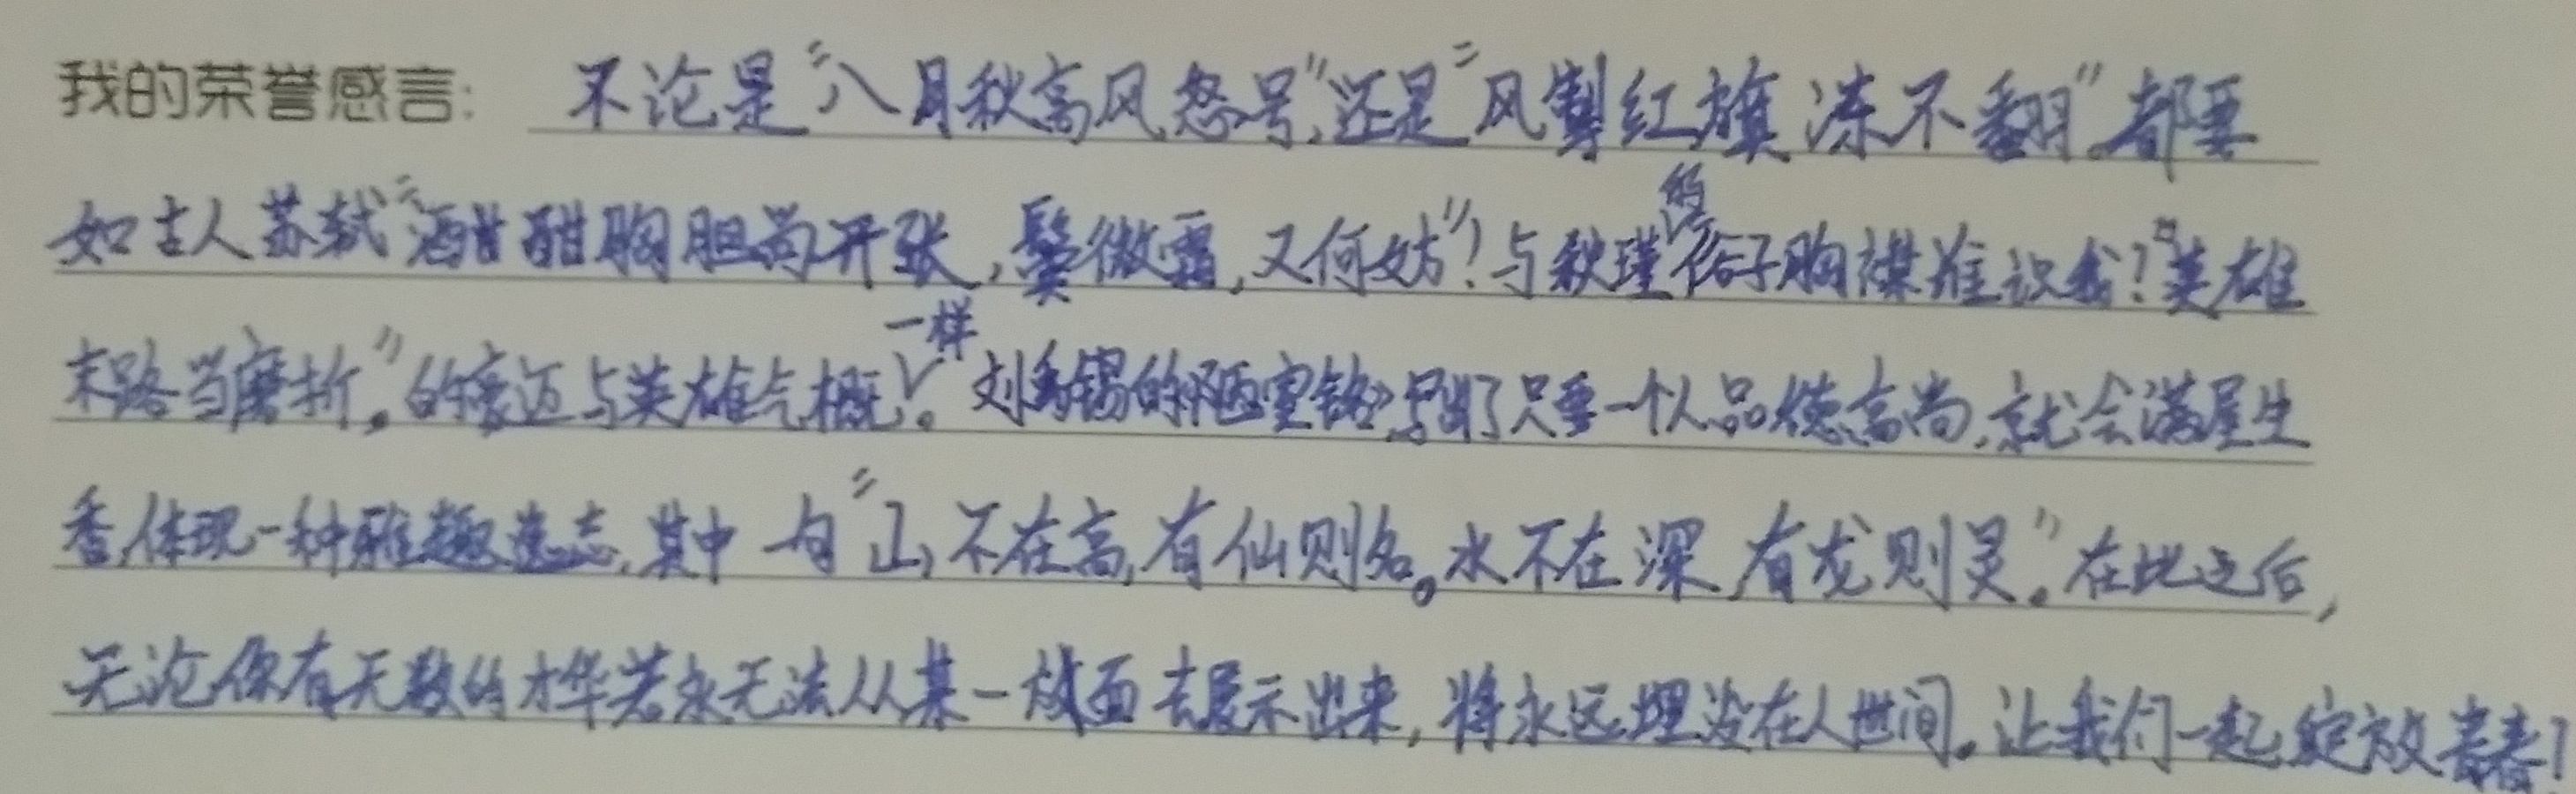 我的荣誉感言: 不论是“八月秋高风怒号”,还是“风掣红旗冻不翻”。都要
如古人苏轼“酒酣胸胆尚开张,鬓微霜,又何妨”!与秋瑾的“俗子胸襟谁识我?英雄
末路当磨折。”的豪迈与英雄气概一样。刘禹锡的《陋室铭》写出了只要一个人品德高尚,就会满屋生
香,体现一种雅趣逸志,其中一句“山不在高,有仙则名。水不在深,有龙则灵”。在此之后,
无论你有无数的才华若永无法从某一方面去展示出来,将永远埋没在人世间。让我们一起绽放青春!